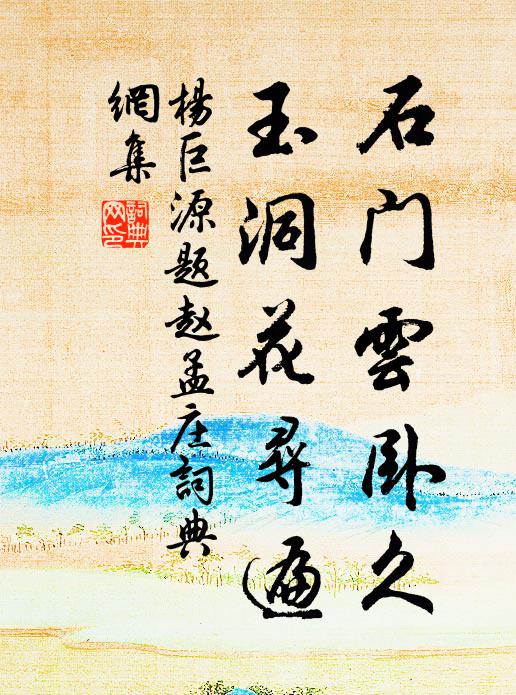 石门雲卧久
玉洞花尋遍
楊巨源题赵孟庄詞典
網集
詞典網印